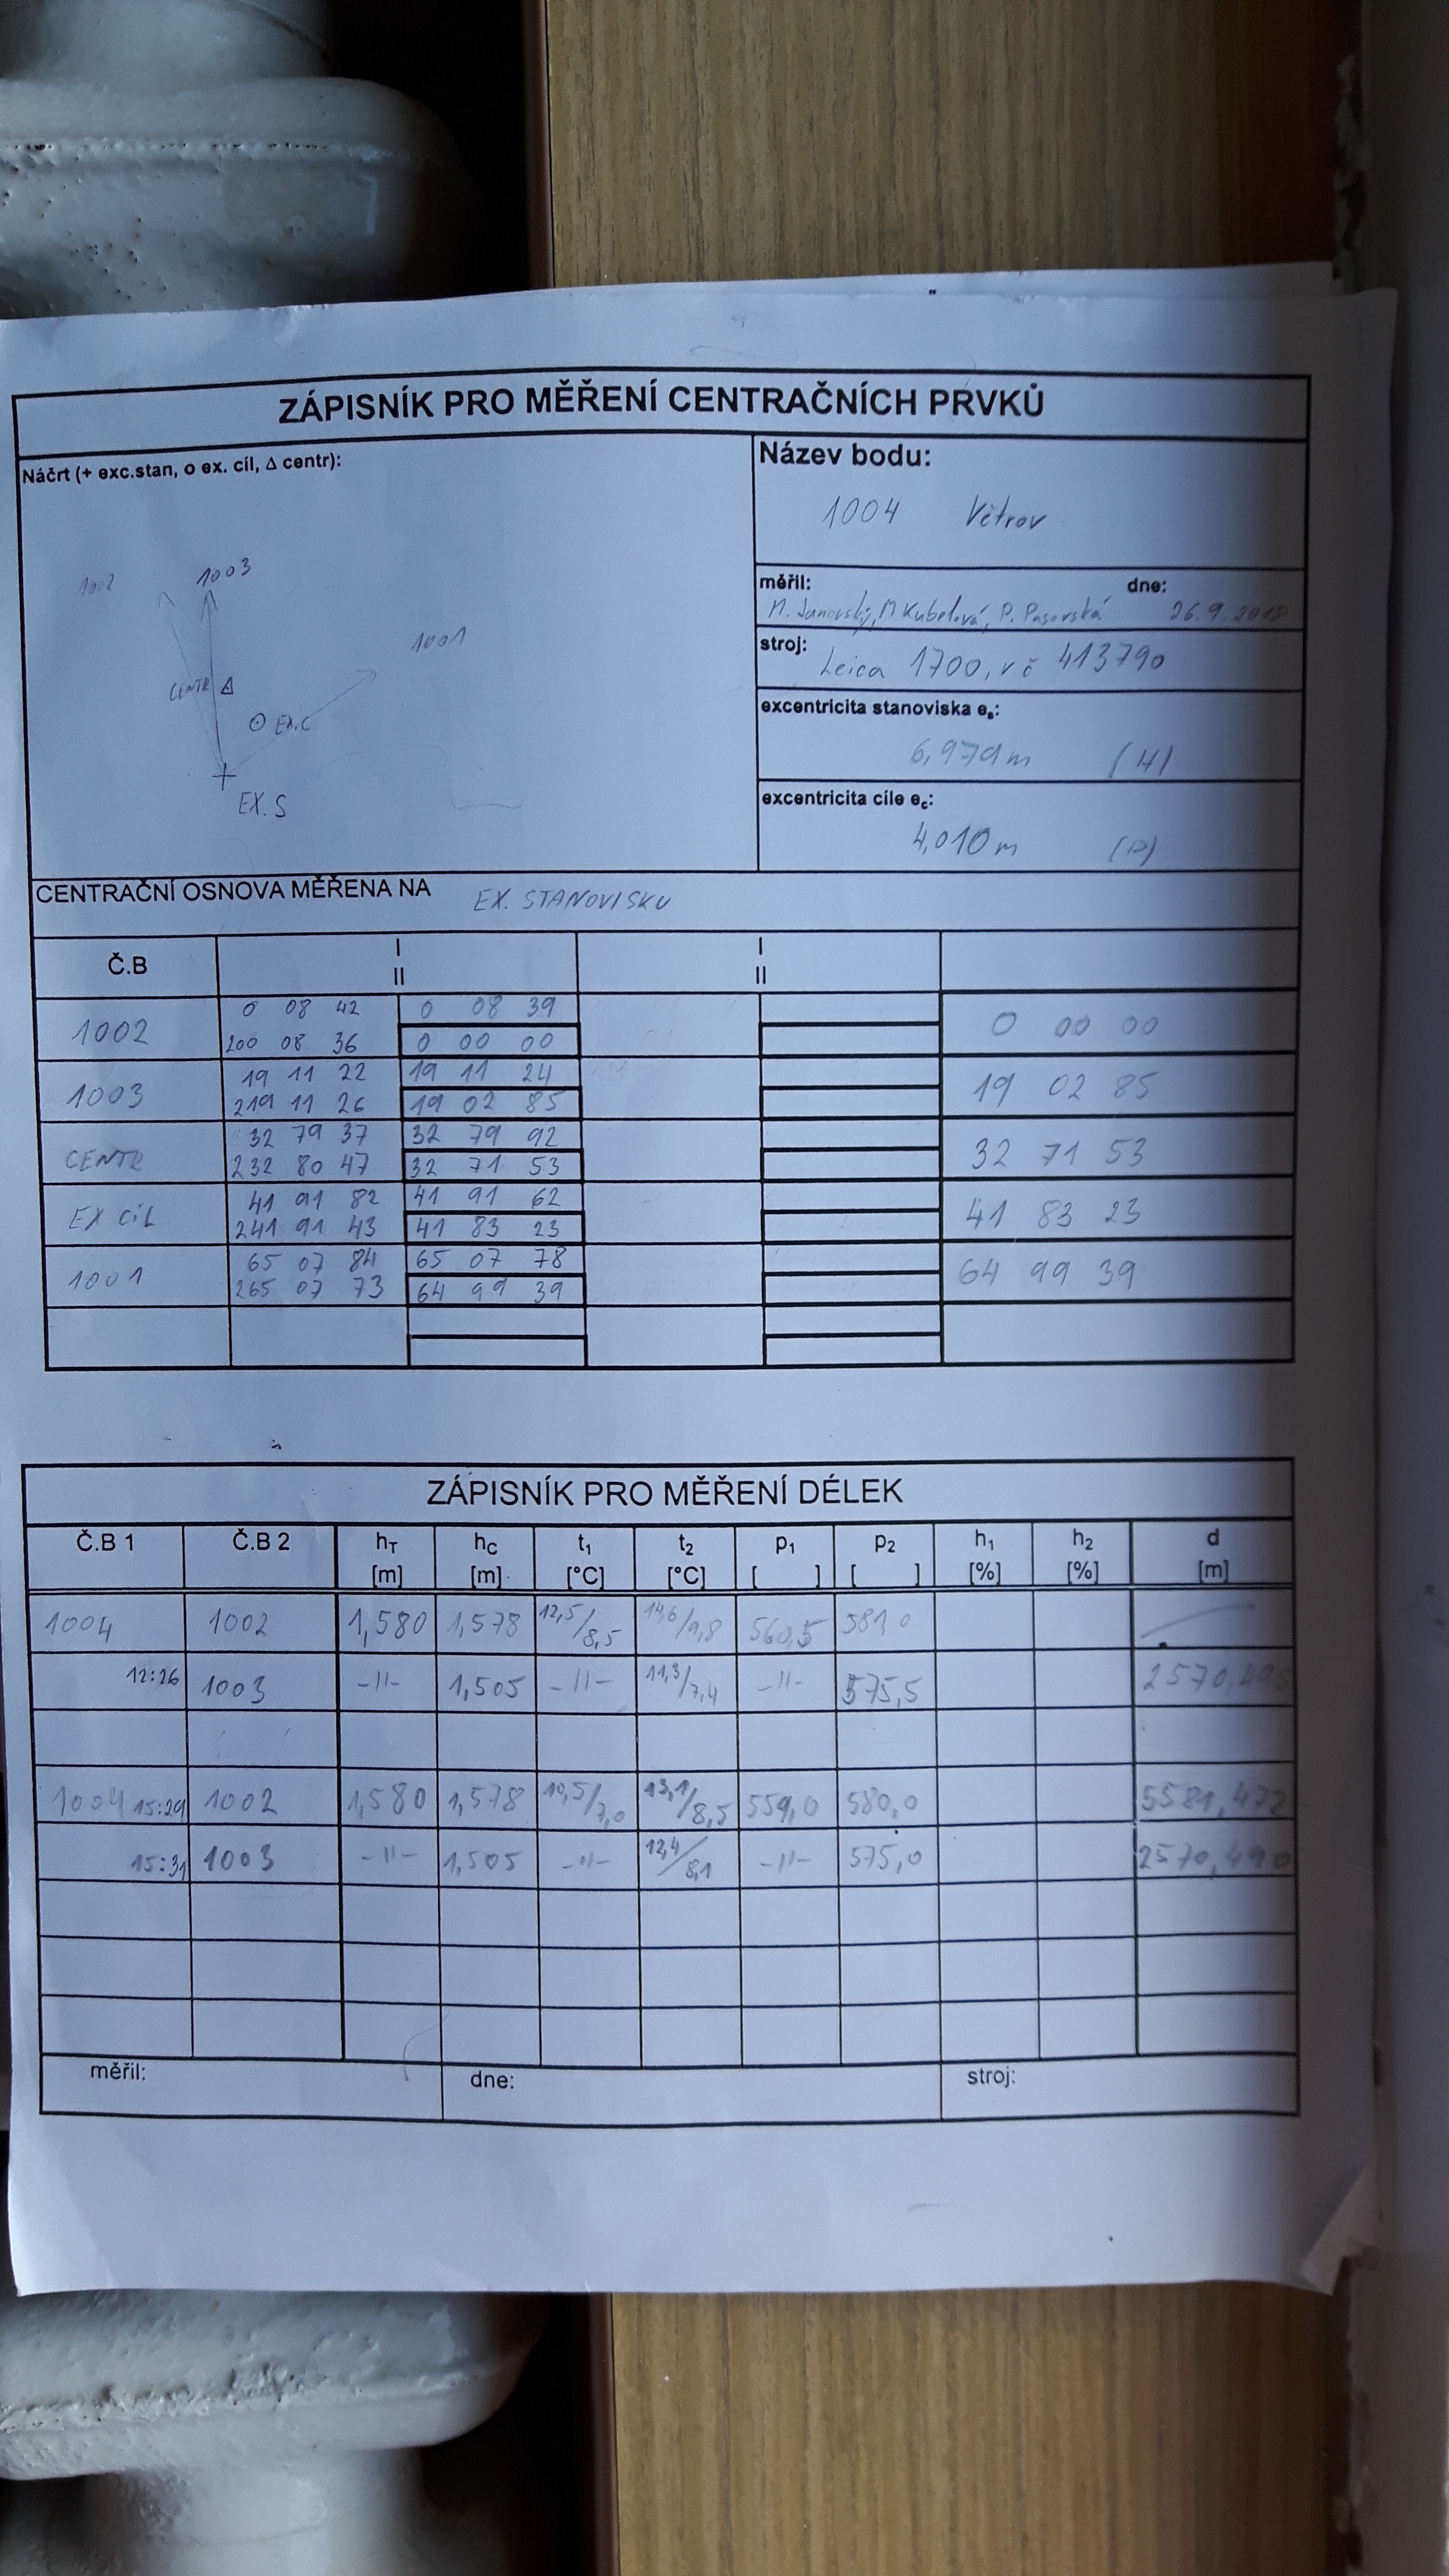 ZÁPISNÍK PRO MĚŘENÍ CENTRAČNÍCH PRVKŮ
Náčrt (+ exc.stan, o ex. cíl, Δ centr):
1002
1003
1001
CENTR Δ
EX.C
EX. S
Název bodu:
1004 Větrov
měřil: dne:
M. Janovský, M Kubelová, P. Pasovská 26.9.2018
stroj: Leica 1700, vč 413790
excentricita stanoviska es:
6,979 m (H)
excentricita cíle ec:
4,010 m
CENTRAČNÍ OSNOVA MĚŘENA NA EX. STANOVISKU
Č.B I II I II
1002 0 08 42 0 08 39 0 00 00
200 08 36 0 00 00
1003 19 11 22 19 11 24 19 02 85
219 11 26 19 02 85
CENTR 32 79 37 32 79 92 32 71 53
232 80 47 32 71 53
EX CÍL 41 91 82 41 91 62 41 83 23
241 91 43 41 83 23
1001 65 07 84 65 07 78 64 99 39
265 07 73 64 99 39
ZÁPISNÍK PRO MĚŘENÍ DÉLEK
Č.B 1 Č.B 2 hT [m] hC [m] t1 [°C] t2 [°C] p1 [ ] p2 [ ] h1 [%] h2 [%] d [m]
1004 1002 1,580 1,578 12,5/8,5 14,6/9,8 560,5 581,0
12:26 1003 -11- 1,505 -11- 11,3/7,4 -11- 575,5
1004 15:29 1002 1,580 1,578 10,5/7,0 13,1/8,5 559,0 580,0 5581,472
15:31 1003 -11- 1,505 -11- 12,4/8,1 -11- 575,0 2570,490
měřil: dne: stroj: